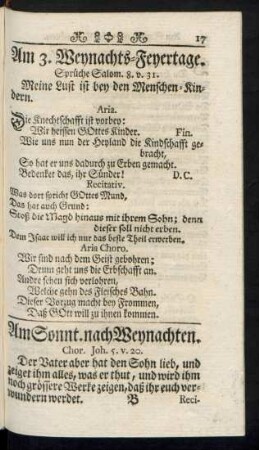 17
Am 3. Weynachts-Feyertage.
Sprüche Salom. 8. v. 31.
Meine Lust ist bey den Menschen-Kin-
dern.
Aria.
Die Knechtschafft ist vorbey:
Wir heissen GOttes Kinder. Fin.
Wie uns nun der Heyland die Kindschafft ge-
bracht,
So hat er uns dadurch zu Erben gemacht.
Bedencket das, ihr Sünder! D.C.
Recitativ.
Was dort spricht GOttes Mund,
Das hat auch Grund:
Stoß die Magd hinaus mit ihrem Sohn; denn
dieser soll nicht erben.
Dem Isaac will ich nur das beste Theil erwerben.
Aria Choro.
Wir sind nach dem Geist gebohren;
Drum geht uns die Erbschafft an.
Andre sehen sich verlohren,
Welche gehn des Fleisches Bahn.
Dieser Vorzug macht bey Frommen,
Daß GOtt will zu ihnen kommen.
Am Sonnt. nach Weynachten.
Chor. Joh. 5. v. 20.
Der Vater aber hat den Sohn lieb, und
zeiget ihm alles, was er thut, und wird ihm
noch grössere Wercke zeigen, daß ihr euch ver-
wundern werdet. B Reci-